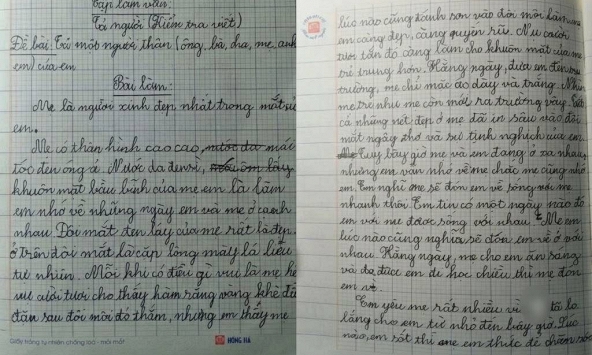 Tập làm văn.
Tả người (Kiểm tra viết)
Đề bài: Tả một người thân (ông, bà, cha, mẹ, anh
em) của em
Bài làm:
Mẹ là người xinh đẹp nhất trong mắt của
em.
Mẹ có thân hình cao cao, nước da mái
tóc đen óng ả. Nước da đen sì,
khuôn mặt bầu bĩnh của mẹ em là làm
em nhớ về những ngày em và mẹ ở cạnh
nhau. Đôi mắt đen láy của mẹ rất là đẹp.
ở trên đôi mắt là cặp lông mày lá liễu
tự nhiên. Mỗi khi có điều gì vui là mẹ hé
nụ cười tươi cho thấy hàm răng vàng khè đều
đặn sau đôi môi đỏ thắm, nhưng em thấy mẹ
Giấy trắng tự nhiên chống lóa - mỏi mắt
HỒNG HÀ
lúc nào cũng đánh son vào đôi môi làm
em càng đẹp, càng quyến rũ. Nụ cười
tươi tắn đó càng làm cho khuôn mặt của mẹ
trẻ trung hơn. Hằng ngày, đưa em đến
trường, mẹ chỉ mặc áo dày và trắng. Nhìn
mẹ trẻ như mẹ còn mới ra trường vậy. Tất
cả những nét đẹp ở mẹ đã in sâu vào đôi
mắt ngây thơ và sự tinh nghịch của em.
Tuy bây giờ mẹ và em đang ở xa nhau
nhưng em vẫn nhớ về mẹ chắc mẹ cũng nhớ
em. Em nghĩ mẹ sẽ đón em về sống với mẹ
nhanh thôi. Em tin có một ngày nào đó
em với mẹ được sống với nhau. Mẹ em
lúc nào cũng nghĩa sẽ đón em về ở với
nhau. Hằng ngày, mẹ cho em ăn sáng
và đưa em đi học chiều thì mẹ đón
em về.
Em yêu mẹ rất nhiều vì đã lo
lắng cho em từ nhỏ đến bây giờ. Lúc
nào, em sốt thì mẹ em thức để chăm sóc